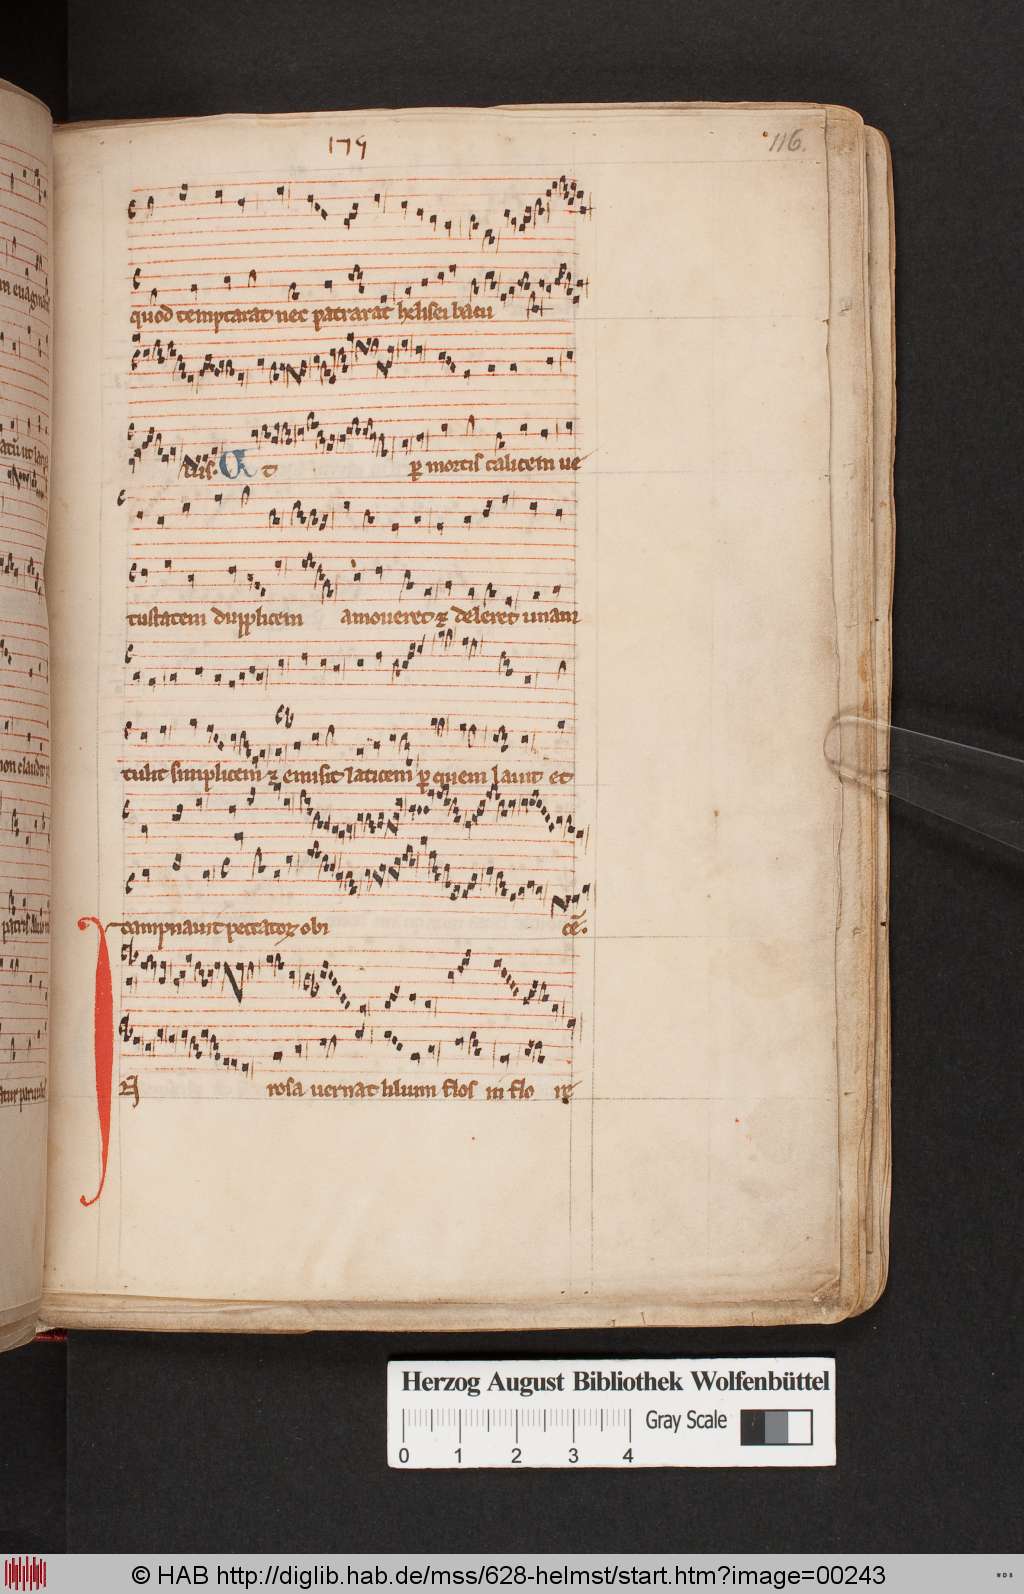 179
116.
quod temptarat nec patrarat helisei bacu
lus. Ut ꝑ mortis calicem ue
tustatem dupplicem amoueret ⁊ deleret unam
tulit simplicem ⁊ emisit laticem ꝑ quem lauit et
dampnauit peccatoꝝ obi ce.
rosa uernat lilium flos in flo re
Herzog August Bibliothek Wolfenbüttel
Gray Scale
0 1 2 3 4
© HAB http://diglib.hab.de/mss/628-helmst/start.htm?image=00243